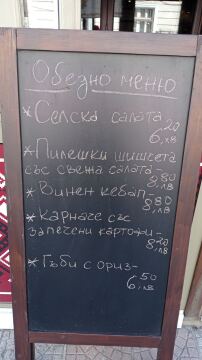 Обедно меню
*Селска салата
6,20 лв
*Пилешки шишчета
със свежа салата-
8,80 лв
*Винен кебап-
8,80 лв
*Карначе със
запечени картофи-
8,20 лв
*Гъби с ориз-
6,50 лв